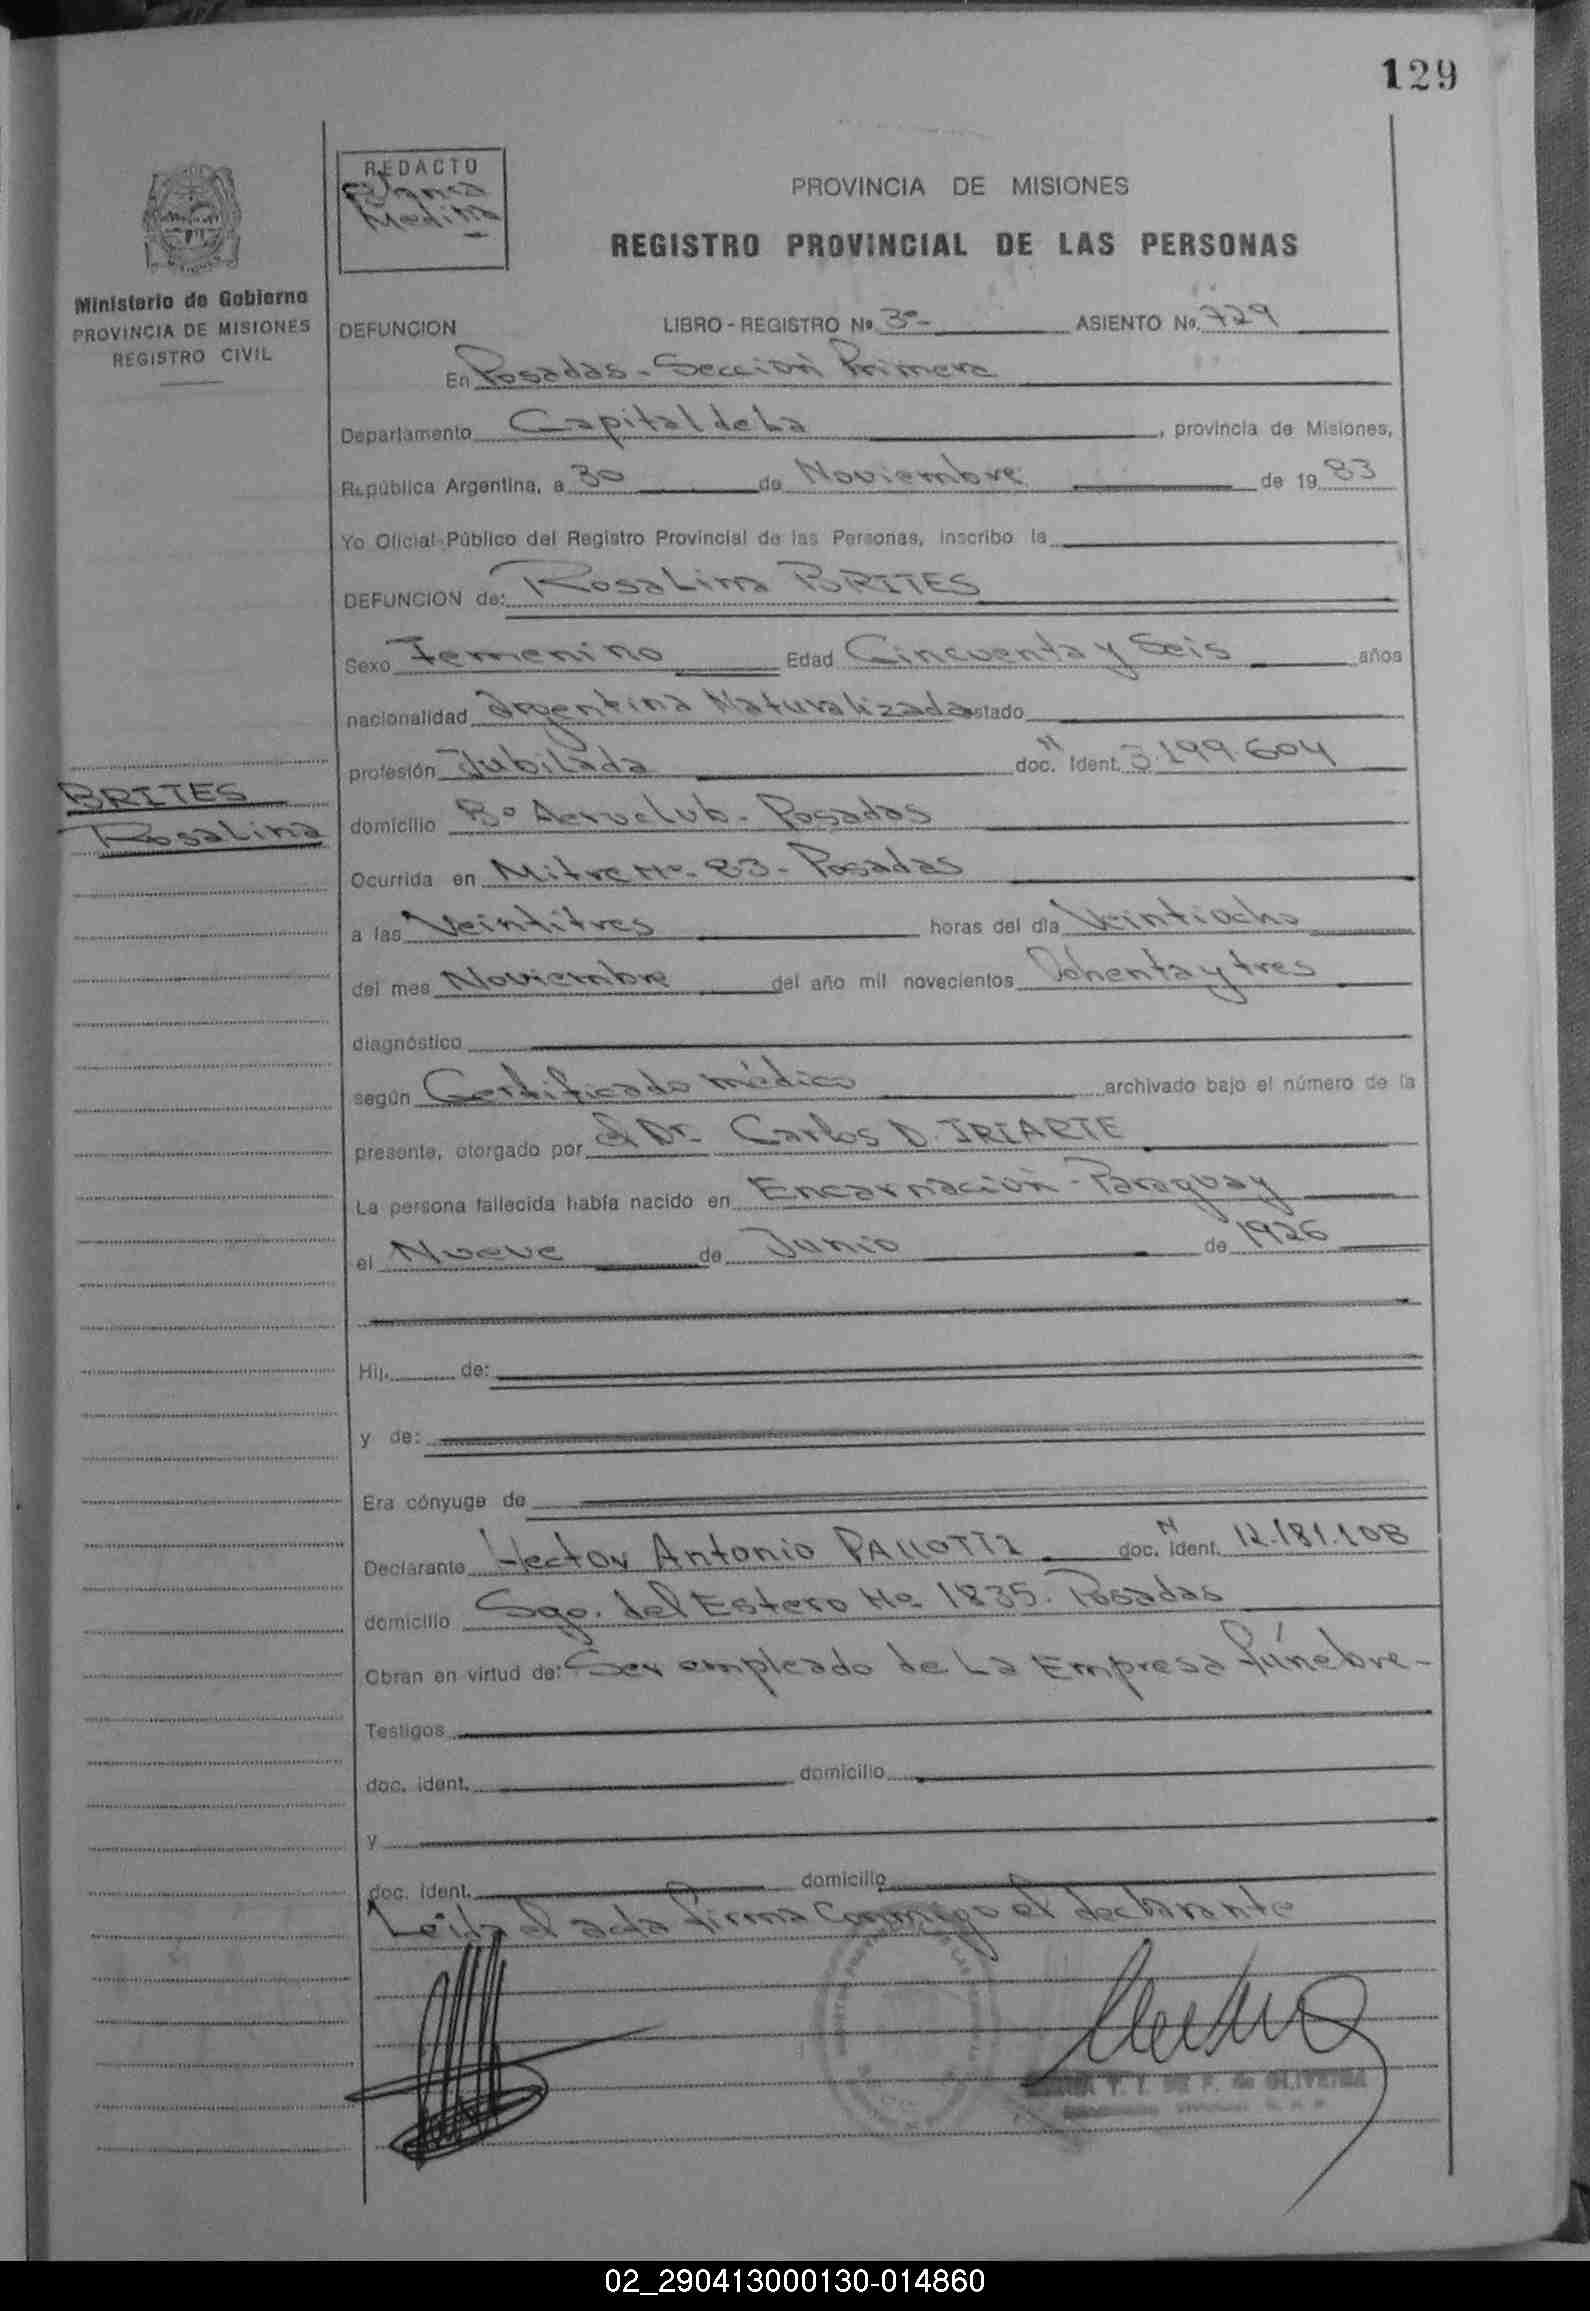 129
REDACTO
Blanca
Medina
PROVINCIA DE MISIONES
REGISTRO PROVINCIAL DE LAS PERSONAS
Ministerio de Gobierno
PROVINCIA DE MISIONES
REGISTRO CIVIL
DEFUNCION LIBRO - REGISTRO Nº 3º- ASIENTO Nº 729
En Posadas - Sección Primera
Departamento Capital de La, provincia de Misiones,
República Argentina, a 30 de Noviembre de 19 83
Yo Oficial Público del Registro Provincial de las Personas, inscribo la
DEFUNCION de: Rosalina BRITES
Sexo Femenino Edad Cincuenta y Seis años
nacionalidad Argentina Naturalizada estado
profesión Jubilada doc. Ident. N 3.199.604
BRITES
Rosalina
domicilio Bº Aeroclub - Posadas
Ocurrida en Mitre Nº 83 - Posadas
a las Veintitres horas del día Veintiocho
del mes Noviembre del año mil novecientos Ochenta y tres
diagnóstico
según Certificado médico archivado bajo el número de la
presente, otorgado por el Dr. Carlos D. IRIARTE
La persona fallecida había nacido en Encarnación - Paraguay
el Nueve de Junio de 1926
Hij de:
y de:
Era cónyuge de
Declarante Hector Antonio PALLOTTI doc. ident. N 12.181.108
domicilio Sgo. del Estero Nº 1835. Posadas
Obran en virtud de: Ser empleado de La Empresa fúnebre -
Testigos
doc. ident. domicilio
y
doc. ident. domicilio
Leída el acta firma conmigo el declarante
de OLIVEIRA
02_290413000130-014860